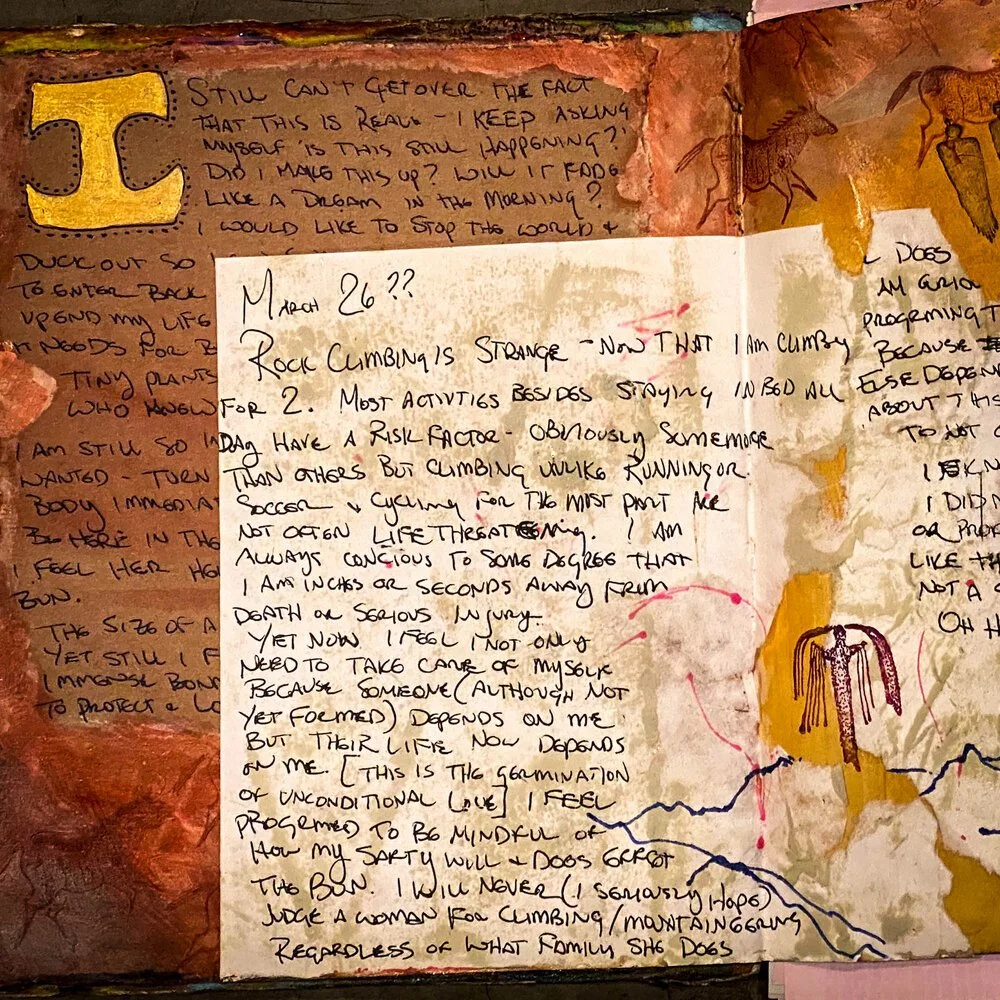 I
STILL CAN'T GET OVER THE FACT
THAT THIS IS REAL - I KEEP ASKING
MYSELF 'IS THIS STILL HAPPENING?'
DID I MAKE THIS UP? WILL IT FADE
LIKE A DREAM IN THE MORNING?
I WOULD LIKE TO STOP THE WORLD &
DUCK OUT SO
TO ENTER BACK
UPEND MY LIFE
NEEDS FOR B
TINY PLANTS
WHO KNEW
I AM STILL SO IN
WANTED - TURN
BODY IMMEDIAT
BE HERE IN THE
I FEEL HER HE
BUN.
THE SIZE OF A
YET STILL I F
IMMENSE BOND
TO PROTECT & LO
MARCH 26??
ROCK CLIMBING IS STRANGE - NOW THAT I AM CLIMBING
FOR 2. MOST ACTIVTIES BESIDES STAYING IN BED ALL
DAY HAVE A RISK FACTOR - OBVIOUSLY SOME MORE
THAN OTHERS BUT CLIMBING UNLIKE RUNNING OR
SOCCER & CYCLING FOR THE MOST PART ARE
NOT OFTEN LIFE THREATENING. I AM
ALWAYS CONCIOUS TO SOME DEGREE THAT
I AM INCHES OR SECONDS AWAY FROM
DEATH OR SERIOUS INJURY.
YET NOW I FEEL I NOT ONLY
NEED TO TAKE CARE OF MYSELF
BECAUSE SOMEONE (ALTHOUGH NOT
YET FORMED) DEPENDS ON ME
BUT THEIR LIFE NOW DEPENDS
ON ME. [THIS IS THE GERMINATION
OF UNCONDITIONAL LOVE] I FEEL
PROGRMED TO BE MINDFUL OF
HOW MY SAFTY WILL & DOES EFFECT
THE BUN. I WILL NEVER (I SERIOUSLY HOPE)
JUDGE A WOMAN FOR CLIMBING/MOUNTAINEERING
REGARDLESS OF WHAT FAMILY SHE DOES
DOES
AM
PROGRMING T
BECAUSE
ELSE DEPEN
ABOUT THIS
TO NOT
I
I DIDN
OR PROP
LIKE TH
NOT A
OH H